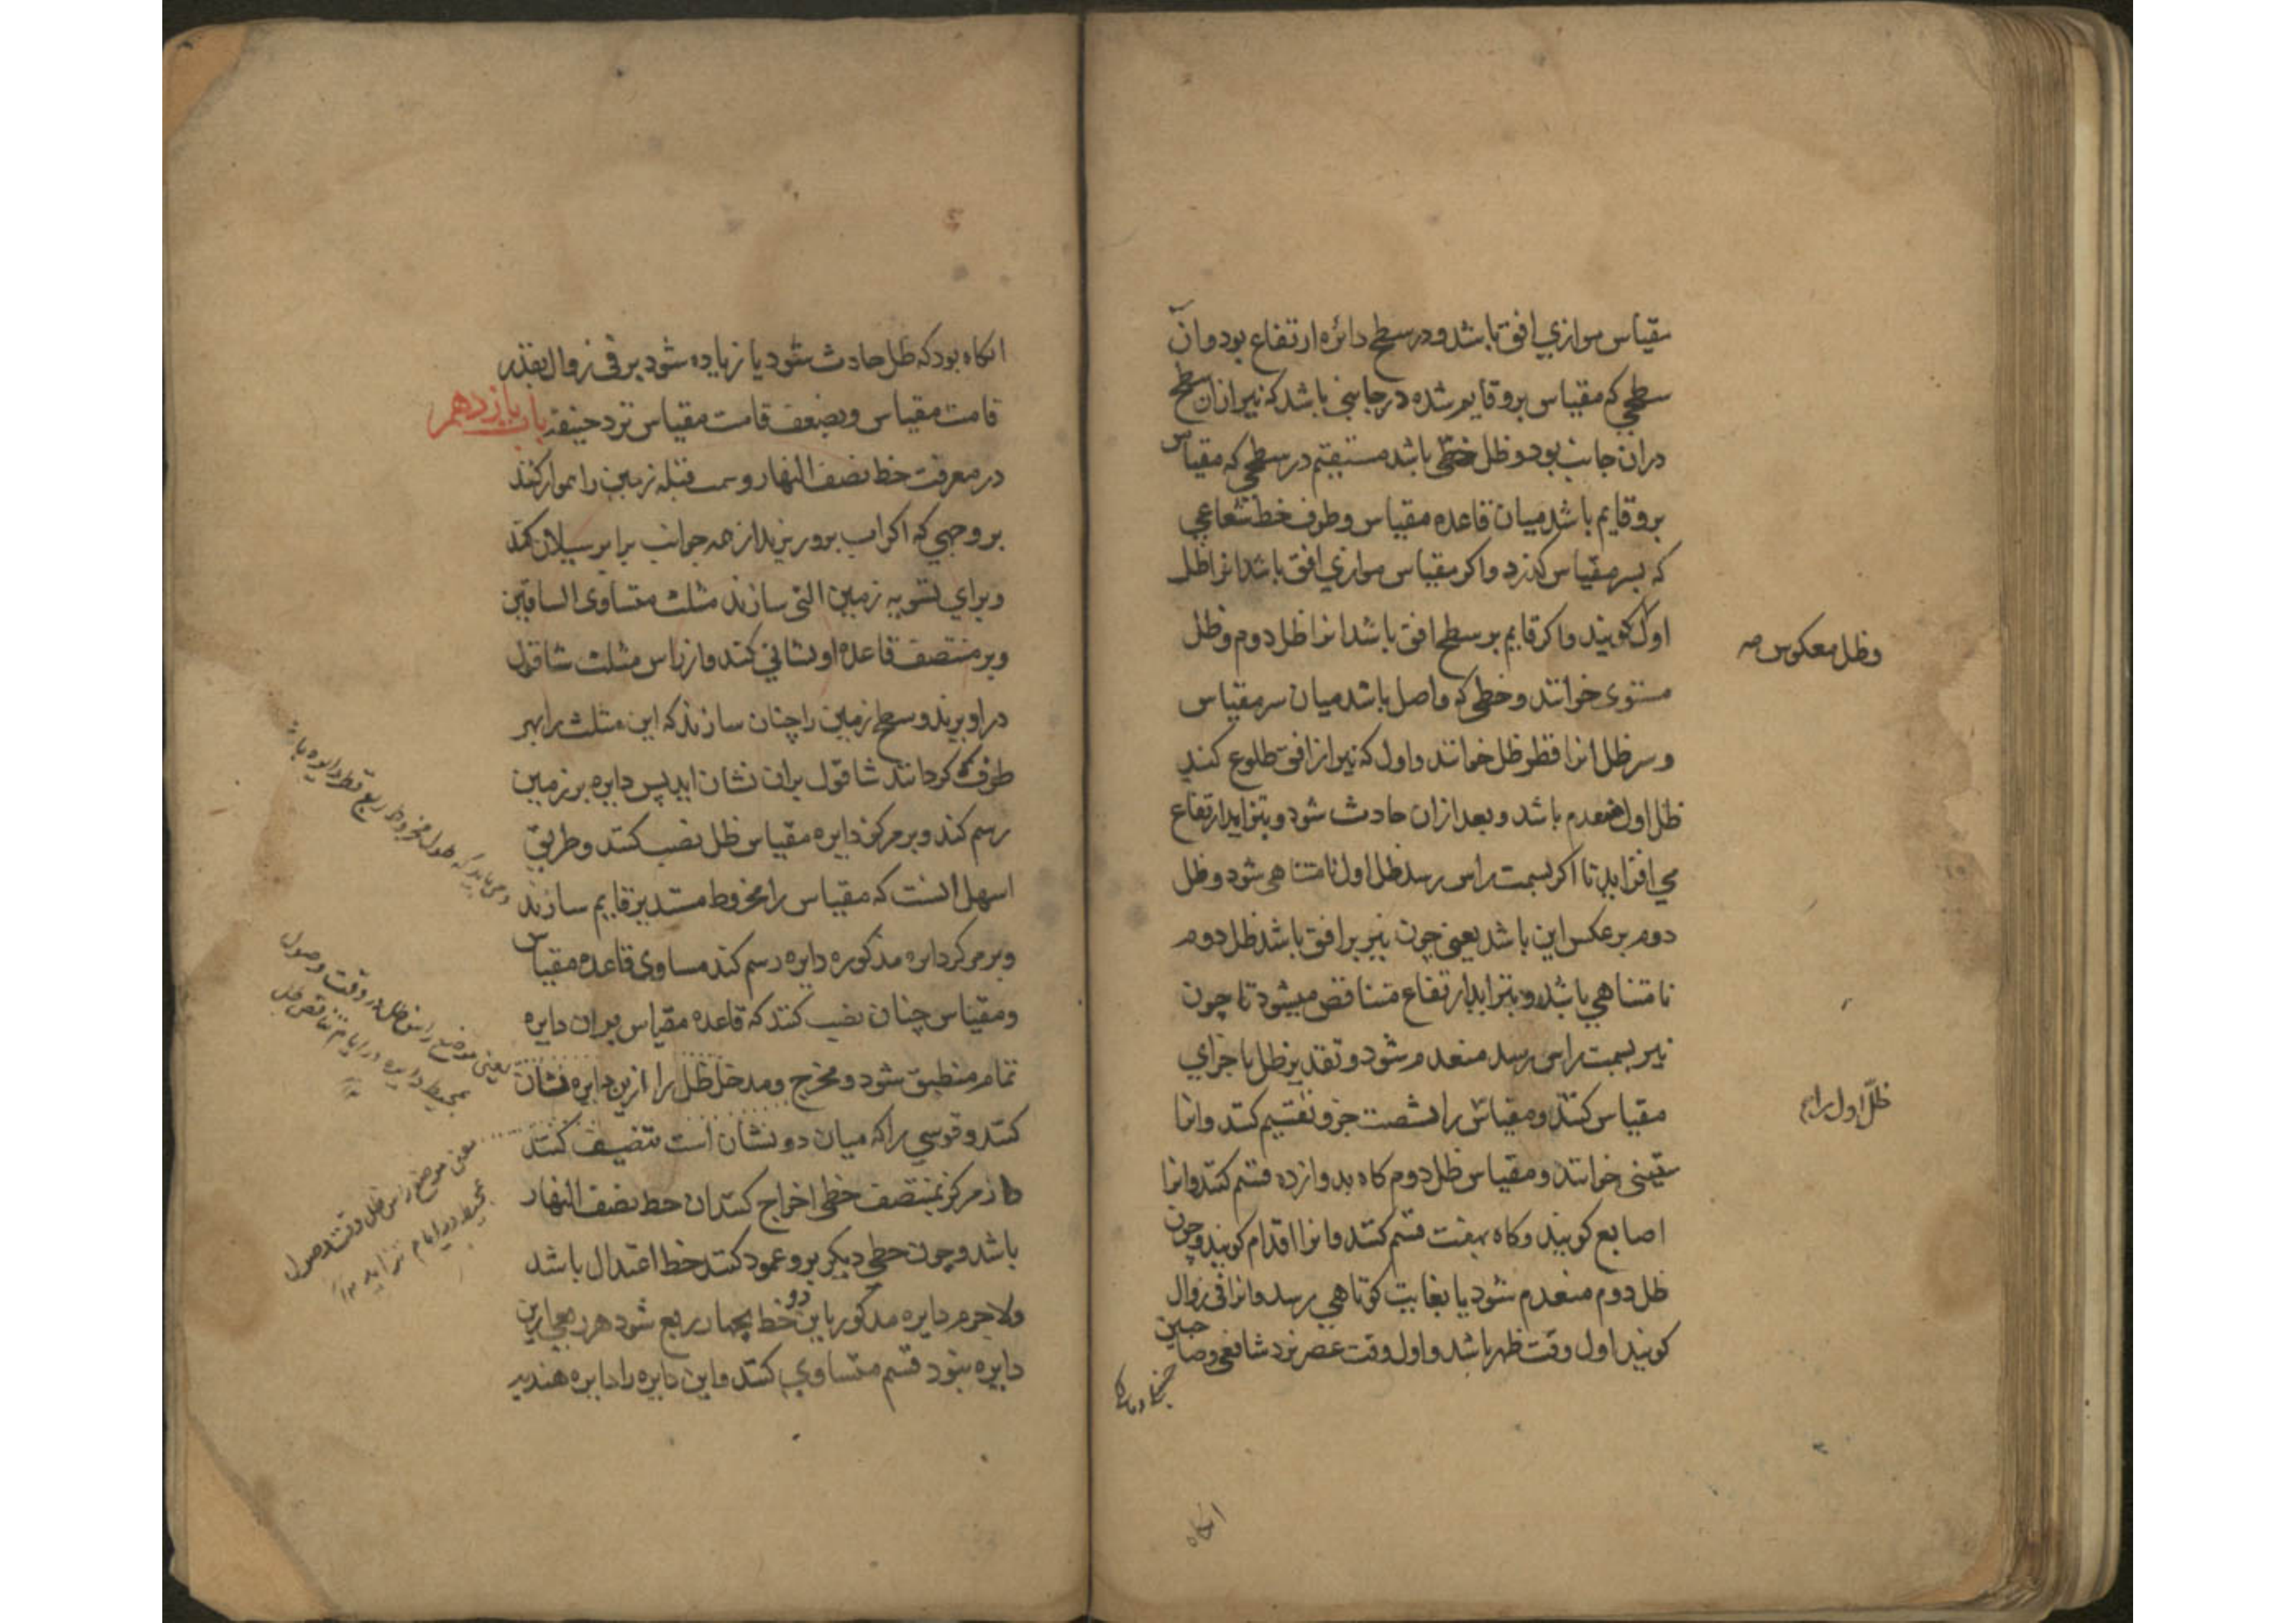 مقیاس موازي افق باشد و در سطح دائره ارتفاع بود و ان
سطحي که مقیاس برو قایم شده در جانبي باشد که نیر ازان سطح
دران جانب بود و ظل خطي باشد مستقیم در سطحي که مقیاس
برو قایم باشد میان قاعده مقیاس و طرف خط شعاعي
که بسر مقیاس کذرد و اکر مقیاس موازي افق باشد انرا ظل
اول کویند و اکر قایم بر سطح افق باشد انرا ظل دوم و ظل
وظل معکوس صه
مستوی خوانند و خطي که واصل باشد میان سر مقیاس
و سر ظل انرا قطر ظل خوانند و اول که نیر از افق طلوع کند
ظل اول منعدم باشد و بعد ازان حادث شود و بتزاید ارتفاع
مي افزاید تا اکر بسمت راس رسد ظل اول نامتناهی شود و ظل
دوم بر عکس این باشد یعني چون نیر بر افق باشد ظل دوم
نامتناهي باشد و بتزاید ارتفاع متناقص میشود تا چون
نیر بسمت راس رسد منعدم شود و تقدیر ظل باجزاي
مقیاس کنند و مقیاس را بشصت جزو تقسیم کنند و انرا
ظل اول را
ستینی خوانند و مقیاس ظل دوم کاه بدوازده قسم کنند و انرا
اصابع کویند و کاه بهفت قسم کنند و انرا اقدام کویند و چون
ظل دوم منعدم شود یا بغایت کوتاهي رسد و انرا في زوال
کویند اول وقت ظهر باشد و اول وقت عصر نزد شافعي و صاحبین
انکاه
انکاه بود که ظل حادث شود یا زیاده شود بر في زوال بقدر
قامت مقیاس و بضعف قامت مقیاس نزد حنیفه باب یازدهم
در معرفت خط نصف النهار و سمت قبله زمین را هموار کنند
بر وجهي که اکر اب برو ریزند از همه جوانب برابر سیلان کند
و براي تسویه زمین التی سازند مثلث متساوی الساقین
و بر منتصف قاعده او نشاني کنند و از راس مثلث شاقول
در اویزند و سطح زمین را چنان سازند که این مثلث را بهر
طرف که کردانند شاقول بران نشان اید پس دایره بر زمین
رسم کند و بر مرکز دایره مقیاس ظل نصب کنند و طریق
اسهل انست که مقیاس را مخروط مستدیر قایم سازند
و بر مرکز دایره مذکوره دایره رسم کند مساوی قاعده مقیاس
و مقیاس چنان نصب کنند که قاعده مقیاس بران دایره
تمام منطبق شود و مخرج و مدخل ظل را ازین دایره نشان
کنند و قوسي را که میان دو نشان است تنصیف کنند
و از مرکز بمنتصف خطی اخراج کنند ان خط نصف النهار
باشد و چون خطي دیکر برو عمود کنند خط اعتدال باشد
ولا جرم دایره مذکور باین دو خط بچهار ربع شود هر ربعي ازین
دایره بنود قسم متساوي کنند و این دایره را دایره هندیه
می باید که طول مخروط ربع قطر دایره باشد
یعنی موضع راس ظل در وقت وصول
بمحیط دایره در ایام تناقص ظل
یعنی موضع راس ظل وقت وصول
بمحیط در ایام تزاید